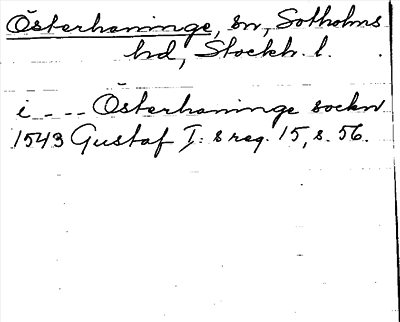 Österhaninge, sn, Sotholms
hd, Stockh. l.
i - - - Österhaninge sockn
1543 Gustaf I:s reg. 15, s. 56.